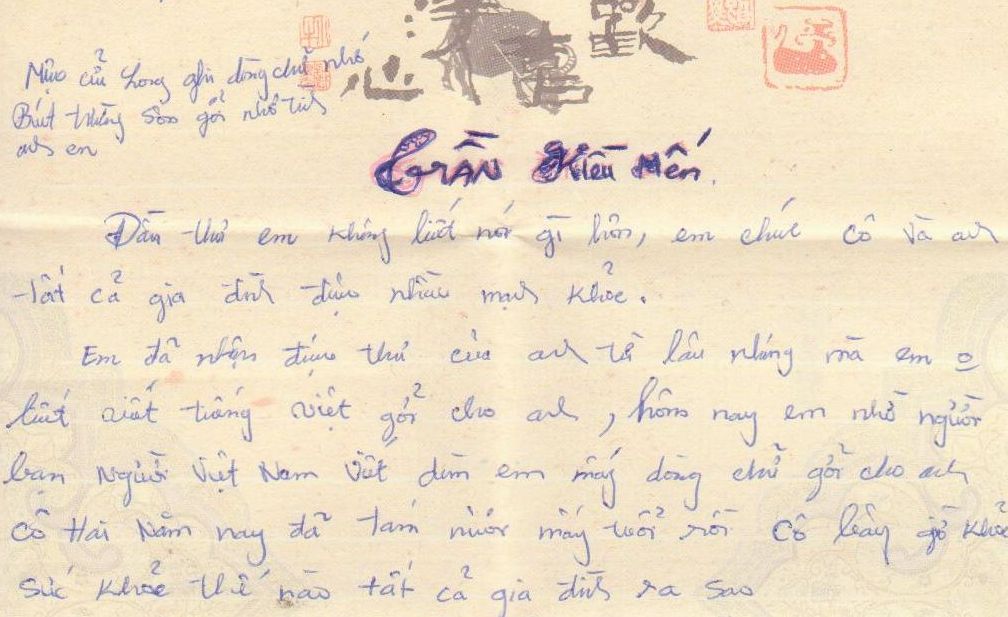 Mực cửu Long ghi dòng chữ nhớ
Bút trường Sơn gởi nhớ tình
anh em
TRẦN Kiều Mến.
Đầu thư em không biết nói gì hơn, em chúc cô và anh
tất cả gia đình được nhiều mạnh khỏe.
Em đã nhận được thư của anh từ lâu nhưng mà em o
biết viết tiếng việt gởi cho anh, hôm nay em nhờ người
bạn Người Việt Nam viết dùm em mấy dòng chữ gởi cho anh
cô Hai Năm nay đã tám mươi mấy tuổi rồi cô bây giờ khỏe
sức khỏe thế nào tất cả gia đình ra sao